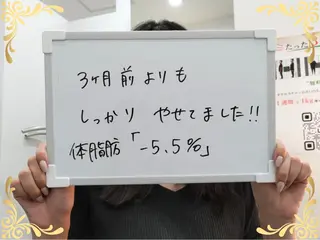 3ヶ月前よりも
しっかり やせてました!!
体脂肪「-5.5%」
たった